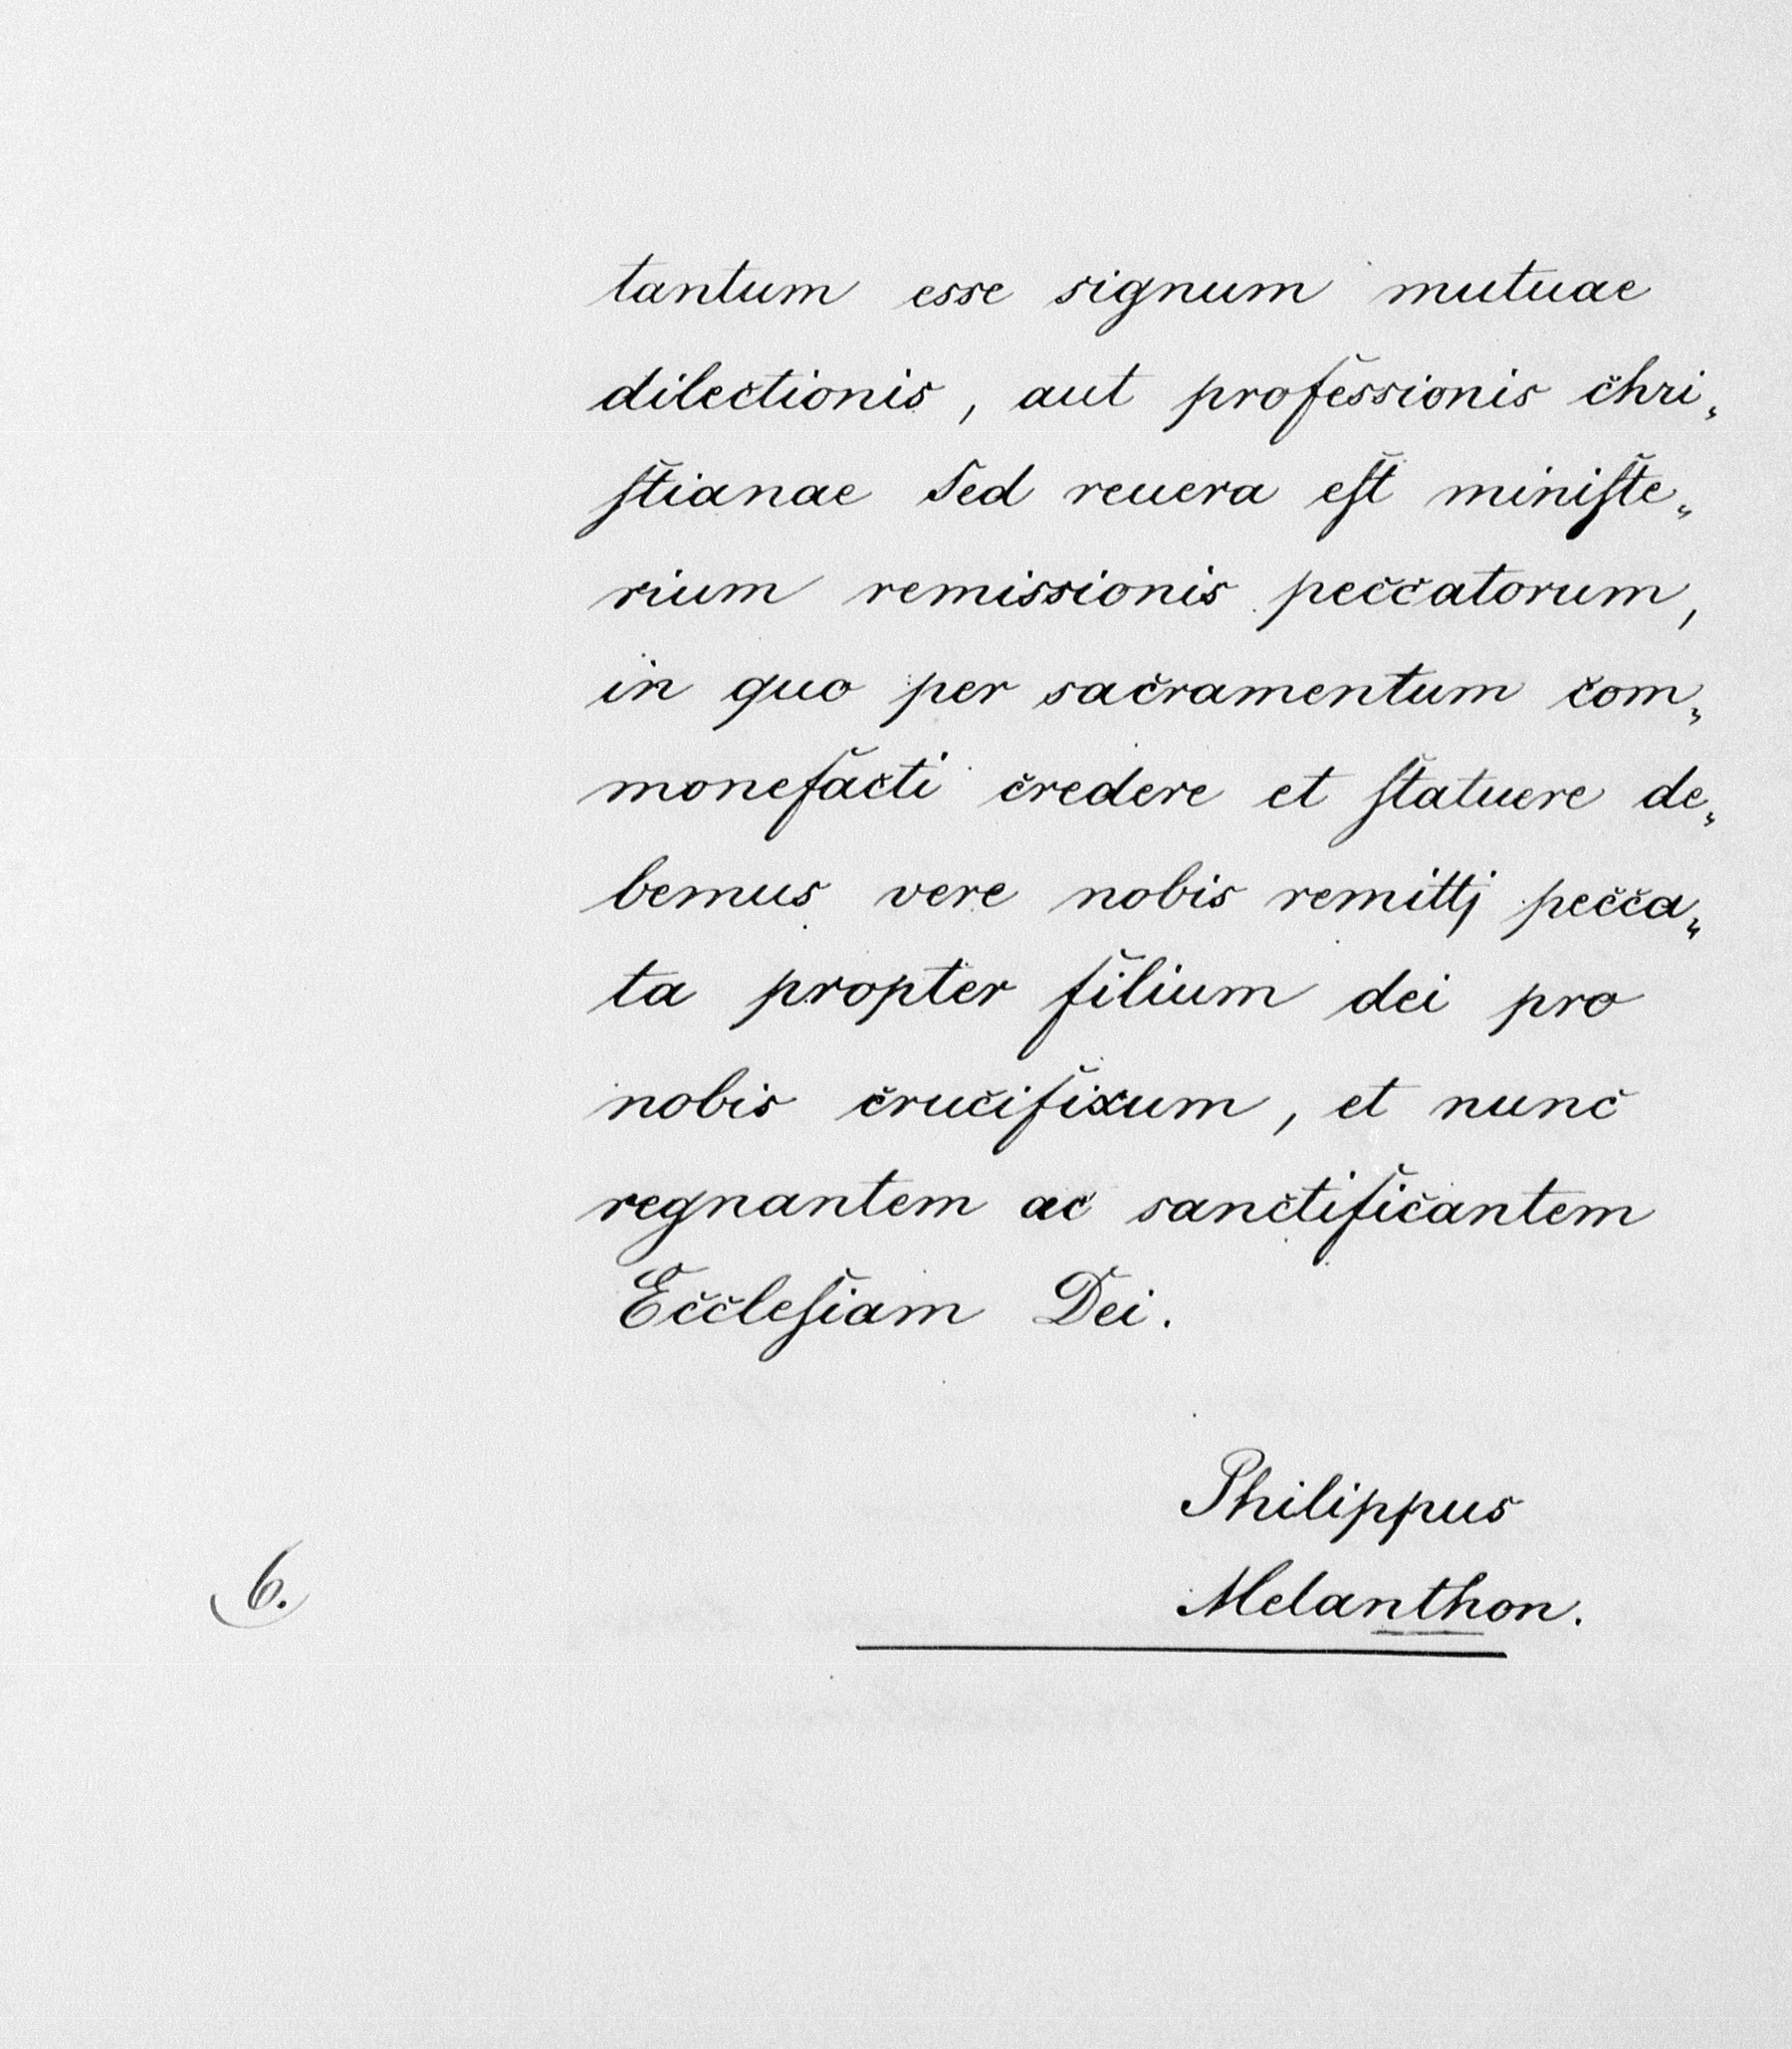 tantum esse signum mutuae
dilectionis, aut professionis chri„
ſtianae Sed reuera eſt miniſte„
rium remissionis peccatorum,
in quo per sacramentum com„
monefacti credere et ſtatuere de„
bemus vere nobis remittj pecca„
ta propter filium dei pro
nobis crucifixum, et nunc
regnantem ac sanctificantem
Eccleſiam Dei.
Philippus
6.
Melanthon.